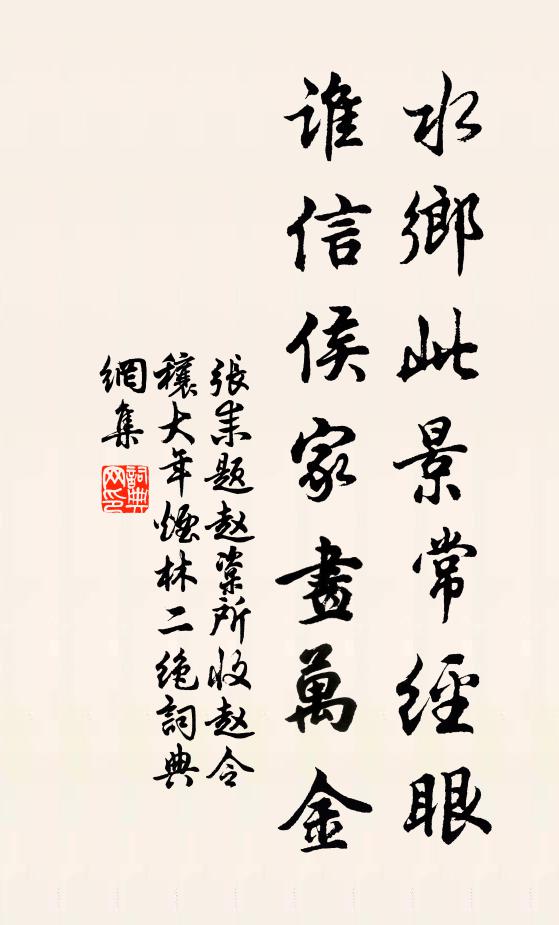 水鄉此景常經眼
誰信侯家畫萬金
張耒題赵楶所收赵令
穰大年煙林二绝詞典
網集
詞典
网印